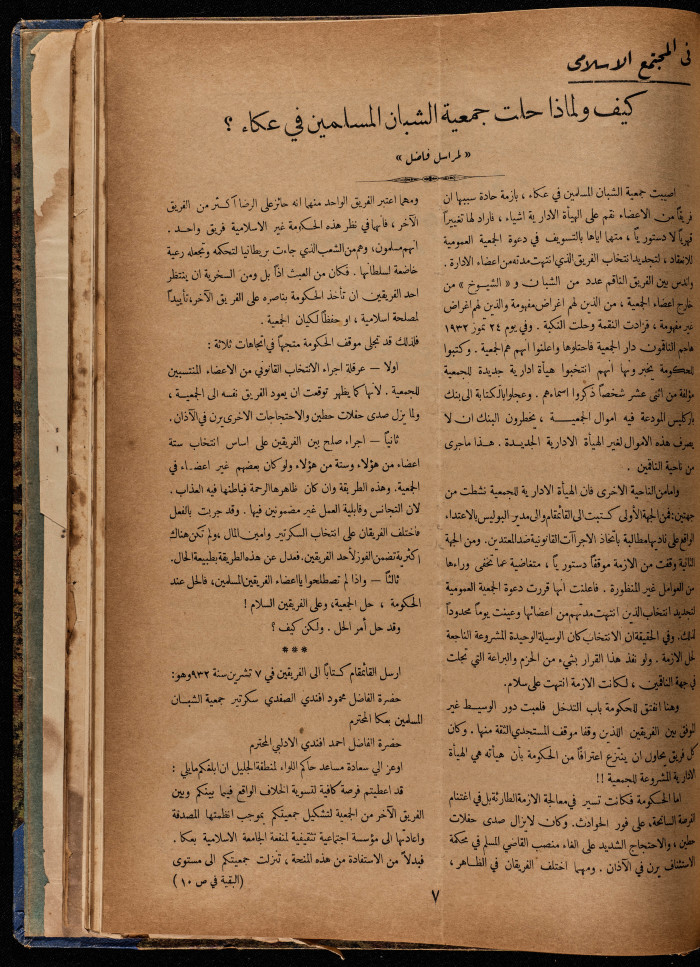 في المجتمع الاسلامى
كيف ولماذا حلت جمعية الشبان المسلمين في عكاء ؟
« لمراسل فاضل »
اصيبت جمعية الشبان المسلمين في عكاء ، بازمة حادة سببها ان
فريقاً من الاعضاء نقم على الهيأة الادارية اشياء ، فاراد لها تغييراً
قهرياً لا دستورياً ، متهماً اياها بالتسويف في دعوة الجمعية العمومية
للانعقاد ، لتجديد انتخاب الفريق الذي انتهت مدته من اعضاء الادارة .
واندس بين الفريق الناقم عدد من الشبان و « الشيوخ » من
خارج اعضاء الجمعية ، من الذين لهم اغراض مفهومة والذين لهم اغراض
غير مفهومة ، فزادت النقمة وحلت النكبة . وفي يوم ٢٤ تموز ١٩٣٢
هاجم الناقمون دار الجمعية فاحتلوها واعلنوا انهم هم الجمعية . وكتبوا
للحكومة يخبرونها انهم انتخبوا هيأة ادارية جديدة للجمعية
مؤلفة من اثنى عشر شخصاً ذكروا اسماءهم . وعجلوا بالكتابة الى بنك
باركليس المودعة فيه اموال الجمعيـــة ، يخطرون البنك ان لا
يصرف هذه الاموال لغير الهيأة الادارية الجديدة . هـذا ماجرى
من ناحية الناقمين .
وامامن الناحية الاخرى فان الهيأة الادارية للجمعية نشطت من
جهتين: فمن الجهة الأولى كتبت الى القائمقام والى مدير البوليس بالاعتداء
الواقع على ناديها مطالبة باتخاذ الاجراآت القانونية ضد المعتدين. ومن الجهة
الثانية وقفت من الازمة موقفاً دستورياً ، متغاضية عما تخفى وراءها
من العوامل غير المنظورة . فاعلنت انها قررت دعوة الجمعية العمومية
لتجديد انتخاب الذين انتهت مدتهم من اعضائها وعينت يوماً محدوداً
لذلك. وفي الحقيقة ان الانتخاب كان الوسيلة الوحيدة المشروعة الناجعة
لحل الازمة . ولو نفذ هذا القرار بشيء من الحزم والبراعة التي تجلت
في جهة الناقمين ، لكانت الازمة انتهت على سلام .
وهنا انفتق للحكومة باب التدخل فلعبت دور الوسيط غير
الموفق بين الفريقين اللذين وقفا موقف المستجدي الثقة منها . وكان
كل فريق يحاول ان ينتزع اعترافاً من الحكومة بأن هيأته هي الهيأة
الادارية المشروعة للجمعية !!
اما الحكومة فكانت تسير في معالجة الازمة الطارئة بل في اغتنام
الفرصة السانحة، على فور الحوادث. وكان لايزال صدى حفلات
حطين ، والاحتجاج الشديد على الغاء منصب القاضي المسلم في محكمة
الاستئناف يرن في الآذان . ومهما اختلف الفريقان في الظاهر ،
ومهما اعتبر الفريق الواحد منهما انه حائز على الرضا أكثر من الفريق
الآخر ، فانهما في نظر هذه الحكومة غير الاسلامية فريق واحد .
انهم مسلمون، وهم من الشعب الذي جاءت بريطانيا لتحكمه وتجعله رعية
خاضعة لسلطانها . فكان من العبث اذاً بل ومن السخرية ان ينتظر
احد الفريقين ان تأخذ الحكومة بناصره على الفريق الآخر، تأييداً
لمصلحة اسلامية ، او حفظاً لكيان الجمعية .
فلذلك قد تجلى موقف الحكومة متجهاً في اتجاهات ثلاثة :
اولا — عرقلة اجراء الانتخاب القانوني من الاعضاء المنتسبين
للجمعية . لأنها كما يظهر توقعت ان يعود الفريق نفسه الى الجمعية ،
ولما يزل صدى حفلات حطين والاحتجاجات الاخرى يرن في الآذان.
ثانياً — اجراء صلح بين الفريقين على اساس انتخاب ستة
اعضاء من هؤلاء وستة من هؤلاء ولو كان بعضهم غير اعضـاء في
الجمعية. وهذه الطريقة وان كان ظاهرها الرحمة فباطنها فيه العذاب .
لان التجانس وقابلية العمل غير مضمونين فيها . وقد جربت بالفعل
فاختلف الفريقان على انتخاب السكرتير وامين المال ، ولم تكن هناك
اكثرية تضمن الفوز لأحد الفريقين. فعدل عن هذه الطريقة بطبيعة الحال.
ثالثاً — واذا لم تصطلحوا يا اعضاء الفريقين المسلمين، فالحل عند
الحكومة ، حل الجمعية، وعلى الفريقين السلام !
وقد حل أمر الحل . ولكن كيف ؟
***
ارسل القائمقام كتاباً الى الفريقين في ٧ تشرين سنة ٩٣٢ وهو:
حضرة الفاضل محمود افندي الصفدي سكرتير جمعية الشبــان
المسلمين بعكا المحترم
حضرة الفاضل احمد افندي الادلبي المحترم
اوعز الي سعادة مساعد حاكم اللواء لمنطقة الجليل ان ابلغكم مايلي :
قد اعطيتم فرصة كافية لتسوية الخلاف الواقع فيما بينكم وبين
الفريق الآخر من الجمعية لتشكيل جمعيتكم بموجب انظمتها المصدقة
واعادتها الى مؤسسة اجتماعية تثقيفية لمنفعة الجامعة الاسلامية بعكا .
فبدلاً من الاستفادة من هذه المنحة ، تنزلت جمعيتكم الى مستوى
(البقية في ص ١٠)
٧